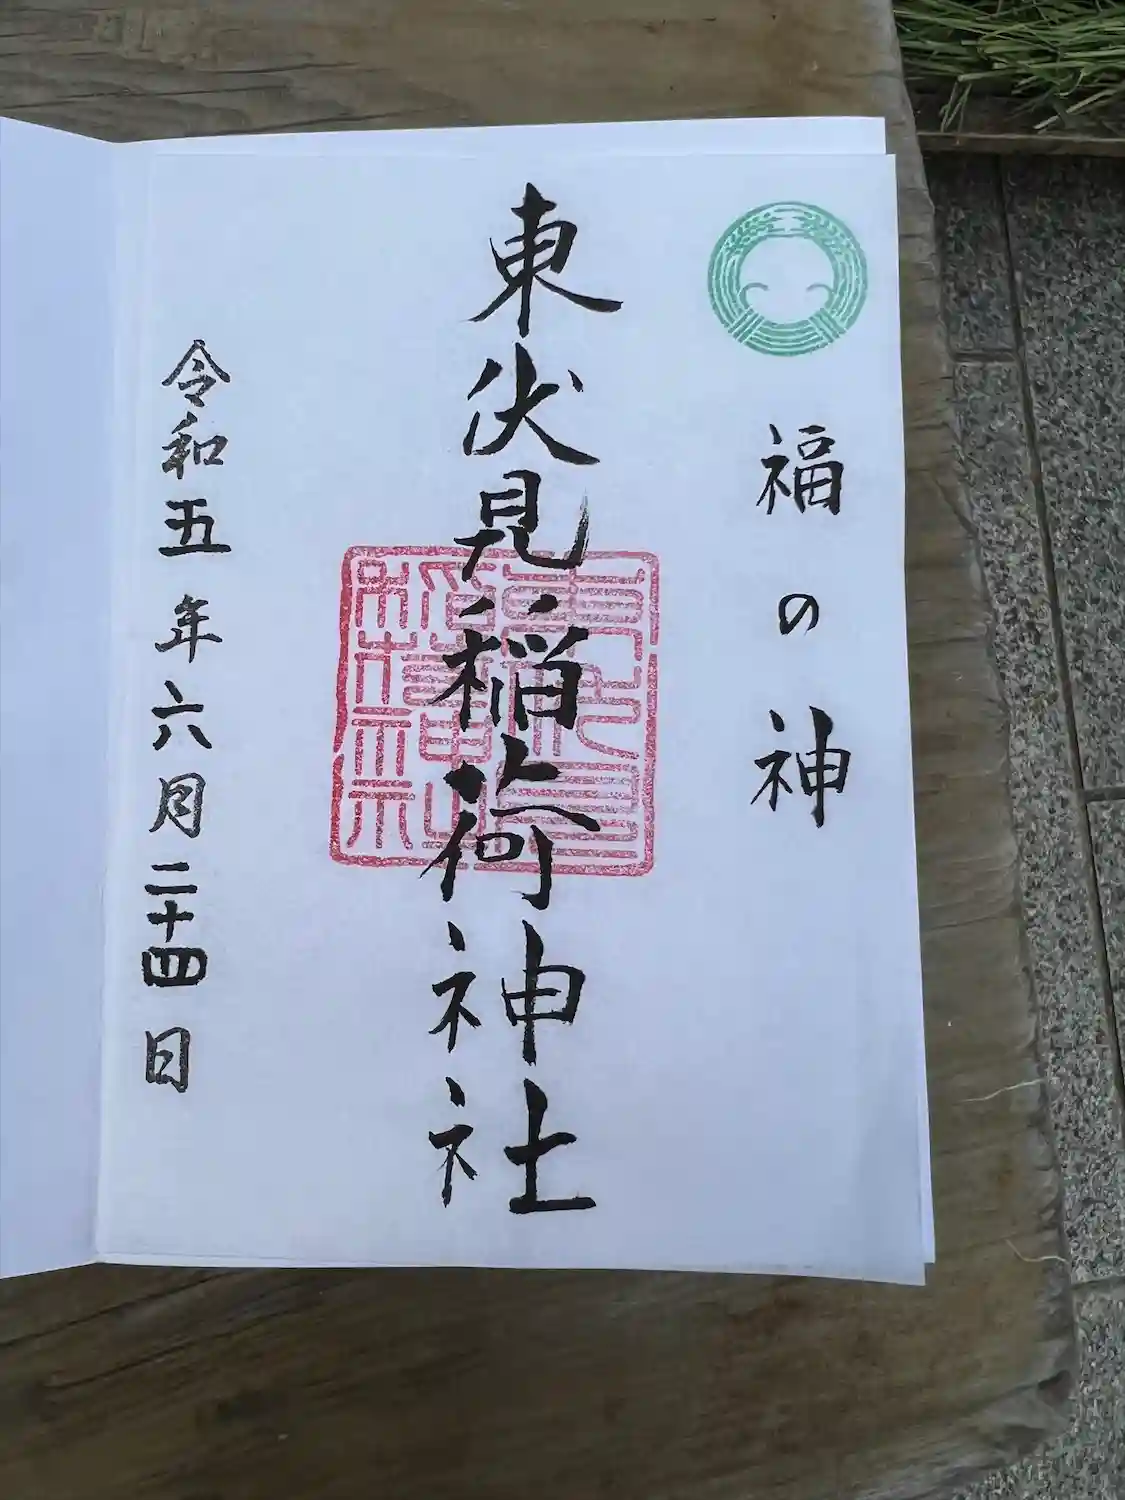 福の神
東伏見稲荷神社
令和五年六月二十四日